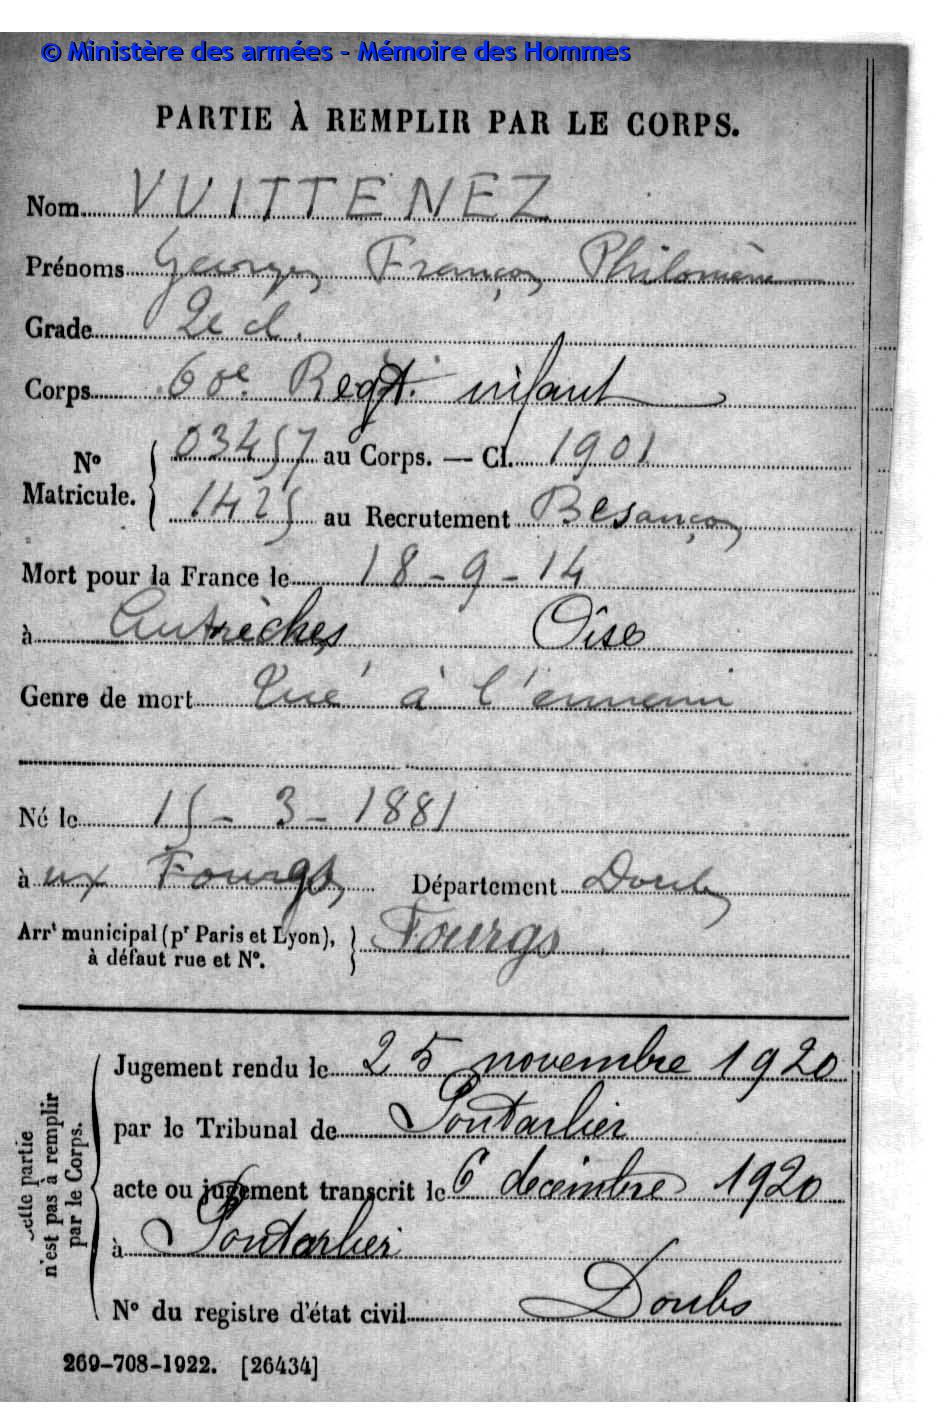 © Ministère des armées - Mémoire des Hommes
PARTIE À REMPLIR PAR LE CORPS.
Nom VUITTENEZ
Prénoms Georges François Philomène
Grade 2e cl.
Corps 60e Regt. infant
No Matricule. 03457 au Corps. — Cl. 1901
1425 au Recrutement Besançon
Mort pour la France le 18-9-14
à Autrèches Oise
Genre de mort Tué à l'ennemi
Né le 15-3-1881
à ux Fourgs Département Doubs
Arrt municipal (pr Paris et Lyon), à défaut rue et No. Fourgs
Cette partie n'est pas à remplir par le Corps.
Jugement rendu le 25 novembre 1920
par le Tribunal de Pontarlier
acte ou jugement transcrit le 6 décembre 1920
à Pontarlier
No du registre d'état civil Doubs
269-708-1922. [26434]